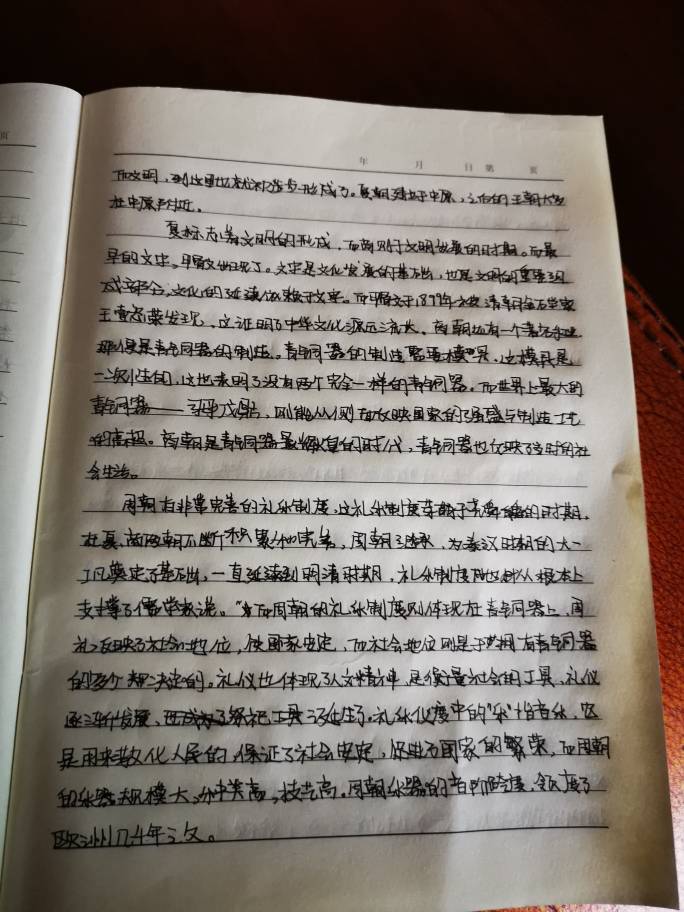 年 月 日 第 页
页
而文明，到这里也就初步形成了。夏朝建于中原，之后的王朝大多
在中原附近。
夏标志着文明的形成，而商则于文明发展的时期。而最
早的文字，甲骨文出现了。文字是文化发展的基础，也是文明的重要组
成部分，文化的延续依赖于文字。而甲骨文于1899年被清朝金石学家
王懿荣发现，这证明了中华文化源远流长。商朝也有一个著名
那便是青铜器的制造。青铜器的制造需要模具，这模具是
一次性的，这也表明了没有两个完全一样的青铜器。而世界上最大的
青铜器——司母戊鼎，则能从侧面反映国家的强盛与制造工艺
的高超。商朝是青铜器最辉煌的时代，青铜器也反映了当时的社
会生活。
周朝有非常完善的礼乐制度，这礼乐制度萌芽于尧舜禹的时期，
在夏、商两朝不断积累和完善，周朝，为秦汉时期的大一
统奠定了基础，一直延续到明清时期，礼乐制度从根本上
支撑了儒学教说。而周朝的礼乐制度则体现在青铜器上，周
礼反映了社会地位，使国家安定，而社会地位则是于拥有青铜器
的多个决定的。礼仪也体现了人文精神，是衡量社会的工具，礼仪
逐渐发展，。礼乐仪度中的“乐”指音乐，它
是用来教化人民的，保证了社会安定，促进了国家的繁荣，而周朝
的乐器规模大，种类高，技艺高。周朝乐器的音阶跨度，领先了
欧洲几千年之久。